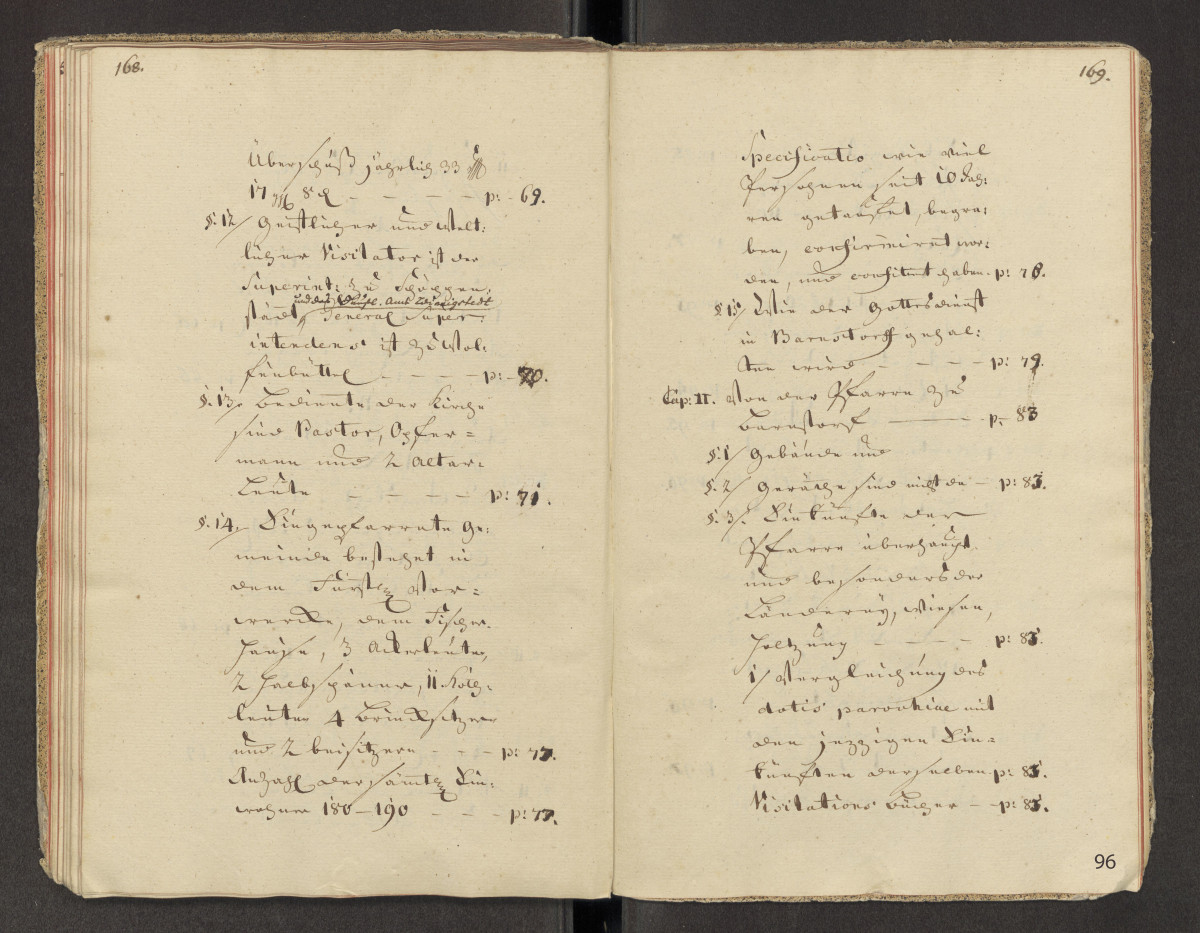 168.
Überschuß jährlich 33
17 8 – – – – p: 69.
§. 12/ Geistlicher und Welt:
licher Visitator ist der
Superint: zu Schöppen:
und das Fürstl. Amt
städt, General Super:
intendens ist zu Wol:
fenbüttel – – – – p: 70.
§. 13/. Bediente der Kirche
sind Pastor, Opfer=
mann und 2 Altar=
Leute – – – – p: 71.
§. 14/. Eingepfarrete Ge:
meinde bestehet in
dem Fürstl. Vor=
wercke, dem Fischer
Hause, 3 Ackerleuten,
2 Halbspänner, 11 Köth:
leuten 4 Brincksitzer
und 2 beisitzern – – – p: 77.
Anzahl der sämtl. Ein:
wohner 180–190 – – – p: 77.
169.
Specificatio wie viel
Persohnen seit 10 Jah:
ren getauffet, begra:
ben, confirmiret wor:
den, und confitirt haben. p: 78.
§ 15/ Wie der Gottesdienst
in Barnstorff gehal:
ten wird – – – – p: 79.
Cap: II. Von der Pfarre zu
Barnstorf ––– p: 83
§. 1/ Gebäude und
§. 2/ Geräthe sind nicht da – p: 83.
§. 3/. Einkünfte der
Pfarre überhaupt
und besonders der
Länderey, Wiesen,
Holtzung – – – p: 85.
1/ Vergleichung des
dotis parochiae mit
den jezzigen Ein=
künften derselben. p: 85.
Visitations Bücher – – p: 85.
96